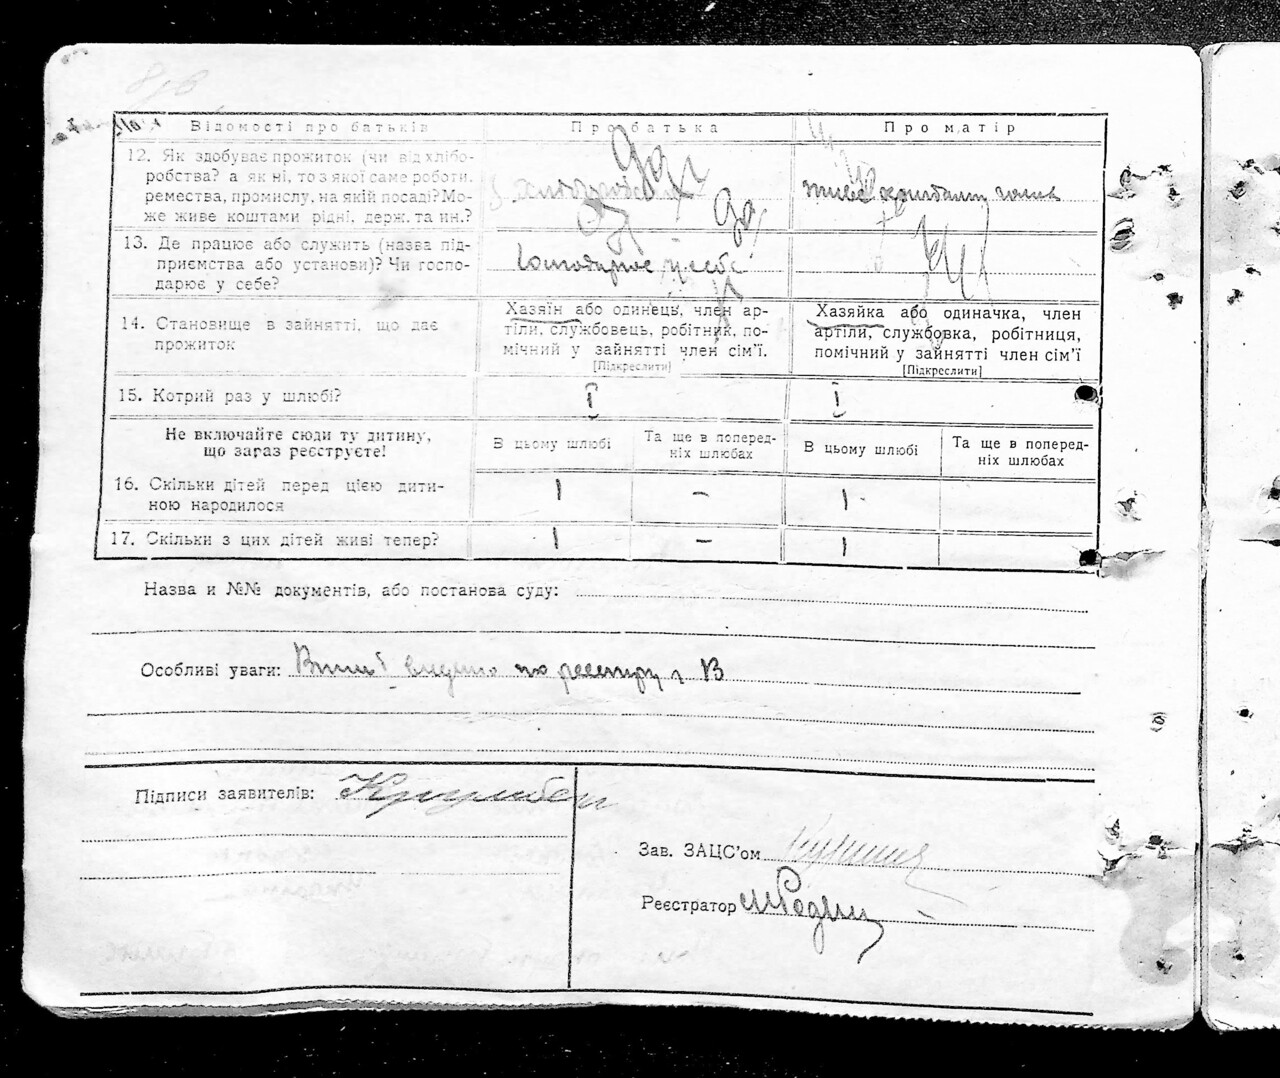 Відомості про батьків
Про батька
Про матір
12. Як здобуває прожиток (чи від хлібо-
робства? а як ні, то з якої саме роботи,
ремества, промислу, на якій посаді? Мо-
же живе коштами рідні, держ. та ин.?
живе коштами чоловіка
13. Де працює або служить (назва під-
приємства або установи)? Чи госпо-
дарює у себе?
господарює у себе
14. Становище в зайнятті, що дає
прожиток
Хазяїн або одинець, член ар-
тілі, службовець, робітник, по-
мічний у зайнятті член сім'ї.
[Підкреслити]
Хазяйка або одиначка, член
артілі, службовка, робітниця,
помічний у зайнятті член сім'ї
[Підкреслити]
15. Котрий раз у шлюбі?
I
I
Не включайте сюди ту дитину,
що зараз реєструєте!
В цьому шлюбі
Та ще в поперед-
ніх шлюбах
В цьому шлюбі
Та ще в поперед-
ніх шлюбах
16. Скільки дітей перед цією дити-
ною народилося
1
–
1
17. Скільки з цих дітей живі тепер?
1
–
1
Назва и №№ документів, або постанова суду:
Особливі уваги: по реєстру
Підписи заявителів:
Зав. ЗАЦС'ом
Реєстратор